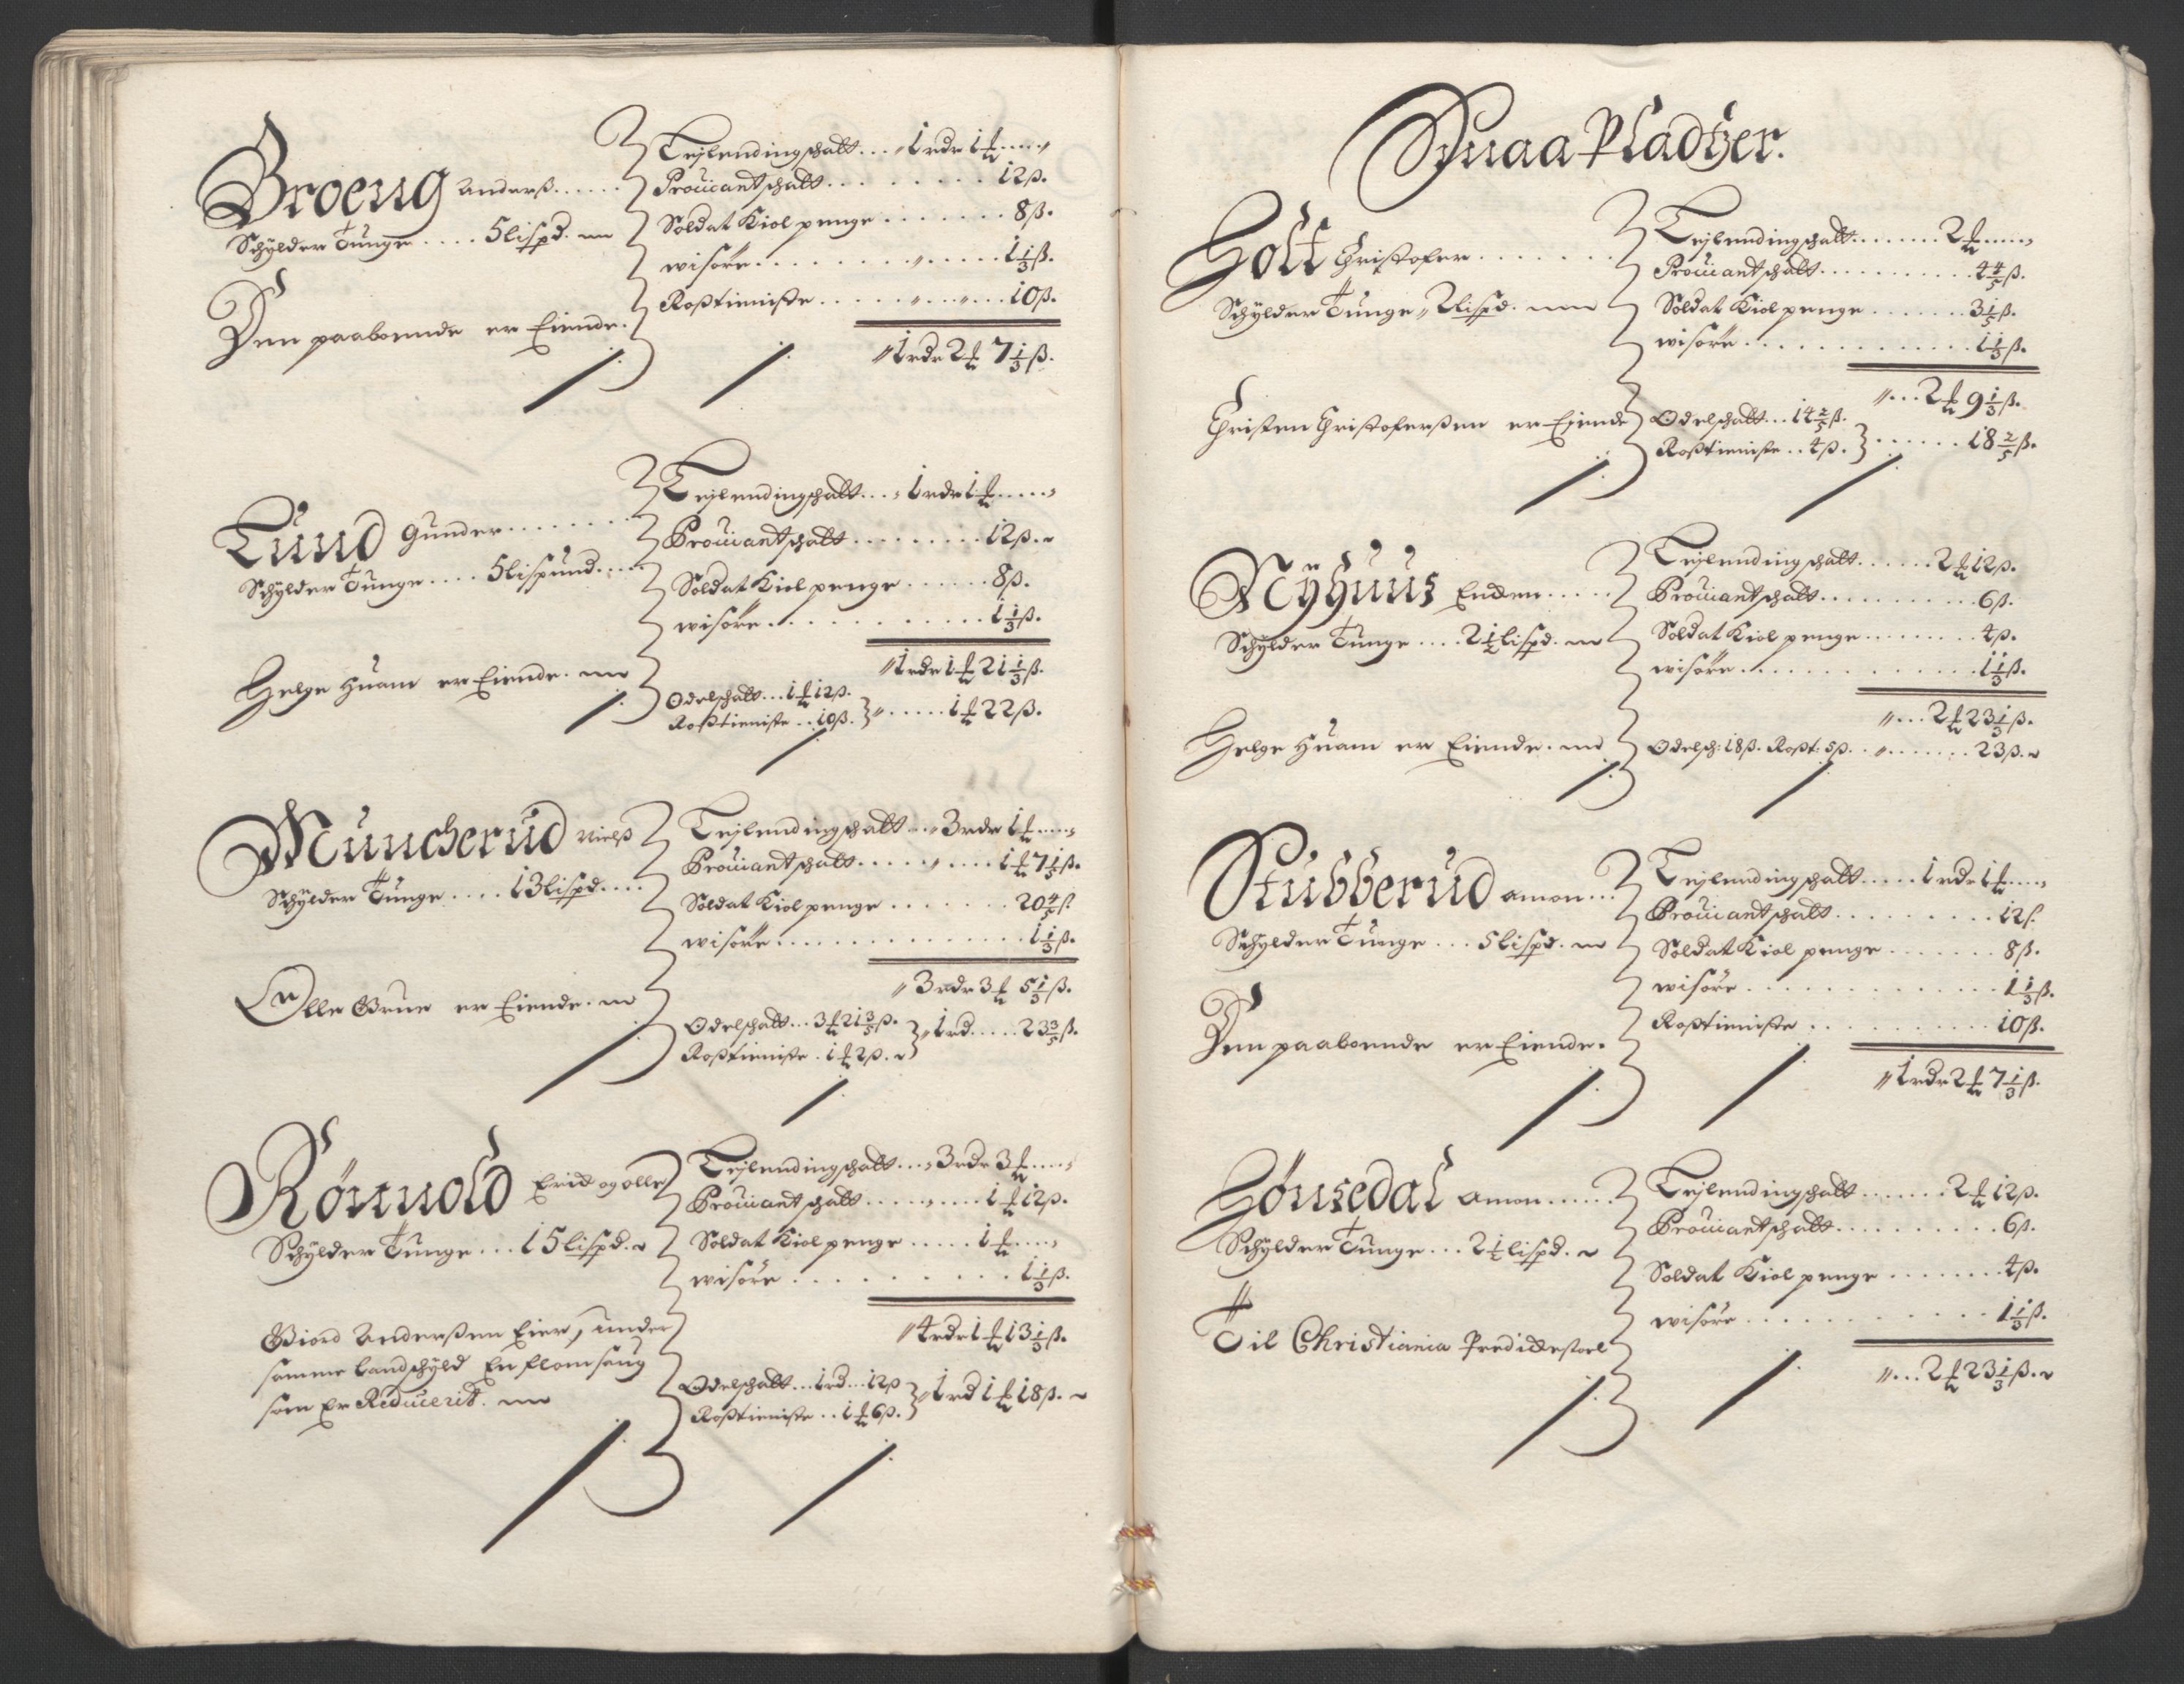 Broeng Anderß......
Schÿlder Tunge .... 5 lispd.
Den paaboende er Eiende.
Leÿlendingschatt ... 1 rdr 1 ₶ ....
Prouiantschatt ......... 12 ß.
Soldat Kiol penge ....... 8 ß.
wisöre ........ 1 1/3 ß.
Roßtieniste ........ 10 ß.
1 rdr 2 ₶ 7 1/3 ß.
Lund Gunder........
Schÿlder Tunge .... 5 lispund....
Helge Huam er Eiende.
Leÿlendingschatt ... 1 rdr 1 ₶ ....
Prouiantschatt ......... 12 ß.
Soldat Kiol penge ...... 8 ß.
wisöre .......... 1 1/3 ß.
1 rdr 1 ₶ 21 1/3 ß.
Odelschatt ... 1 ₶ 12 ß.
Roßtieniste .. 10 ß. } ..... 1 ₶ 22 ß.
Muncherud Nielß
Schÿlder Tunge .... 13 lispd....
Olle Grue er Eiende.
Leÿlendingschatt ... 3 rdr 1 ₶ ....
Prouiantschatt ......... 1 ₶ 7 1/5 ß.
Soldat Kiol penge ....... 20 4/5 ß
wisöre ............ 1 1/3 ß.
3 rdr 3 ₶ 5 1/3 ß.
Odelschatt ... 3 ₶ 21 3/5 ß.
Roßtieniste . 1 ₶ 2 ß. } 1 rd ..... 23 3/5 ß.
Römnold Erich og olle
Schÿlder Tunge ... 15 lispd.
Giord Anderßen Eier, under
samme landschÿld En flomsaug
som Er Reducerit.
Leÿlendingschatt ... 3 rdr 3 ₶ ....
Prouiantschatt ........ 1 ₶ 12 ß.
Soldat Kiol penge ..... 1 ₶ ....
wisöre .......... 1 1/3 ß.
4 rdr 1 ₶ 13 1/3 ß.
Odelschatt ... 1 rd ... 12 ß
Roßtieniste .. 1 ₶ 6 ß. } 1 rd 1 ₶ 18 ß.
Smaa Pladtzer.
Holt Christofer.......
Schÿlder Tunge 2 lispd.
Christen Christoferßen er Eiende
Leÿlendingschatt ........ 2 ₶ ....
Prouiantschatt ........... 4 4/5 ß.
Soldat Kiol penge ....... 3 1/5 ß.
wisöre ............ 1 1/3 ß.
... 2 ₶ 9 1/3 ß.
Odelschatt ... 14 2/5 ß.
Roßtieniste .. 4 ß. } ...... 18 2/5 ß.
Nÿhuus Enden.....
Schÿlder Tunge .... 2 1/2 lispd.
Helge Huam er Eiende.
Leÿlendingschatt ...... 2 ₶ 12 ß.
Prouiantschatt ........... 6 ß.
Soldat Kiol penge ........ 4 ß.
wisöre ............ 1 1/3 ß.
... 2 ₶ 23 1/3 ß.
Odelsch: 18 ß. Roßt: 5 ß. ....... 23 ß.
Stubberud Amon...
Schÿlder Tunge ... 5 lispd.
Den paaboende er Eiende.
Leÿlendingschatt ..... 1 rdr 1 ₶ ....
Prouiantschatt ......... 12 ß.
Soldat Kiol penge ....... 8 ß.
wisöre ............ 1 1/3 ß.
Roßtieniste .......... 10 ß.
1 rdr 2 ₶ 7 1/3 ß.
Hönsedal Amon.....
Schÿlder Tunge ... 2 1/2 lispd.
Til Christiania Predickestoel
Leÿlendingschatt ....... 2 ₶ 12 ß.
Prouiantschatt .......... 6 ß.
Soldat Kiol penge ........ 4 ß.
wisöre ............ 1 1/3 ß.
... 2 ₶ 23 1/3 ß.